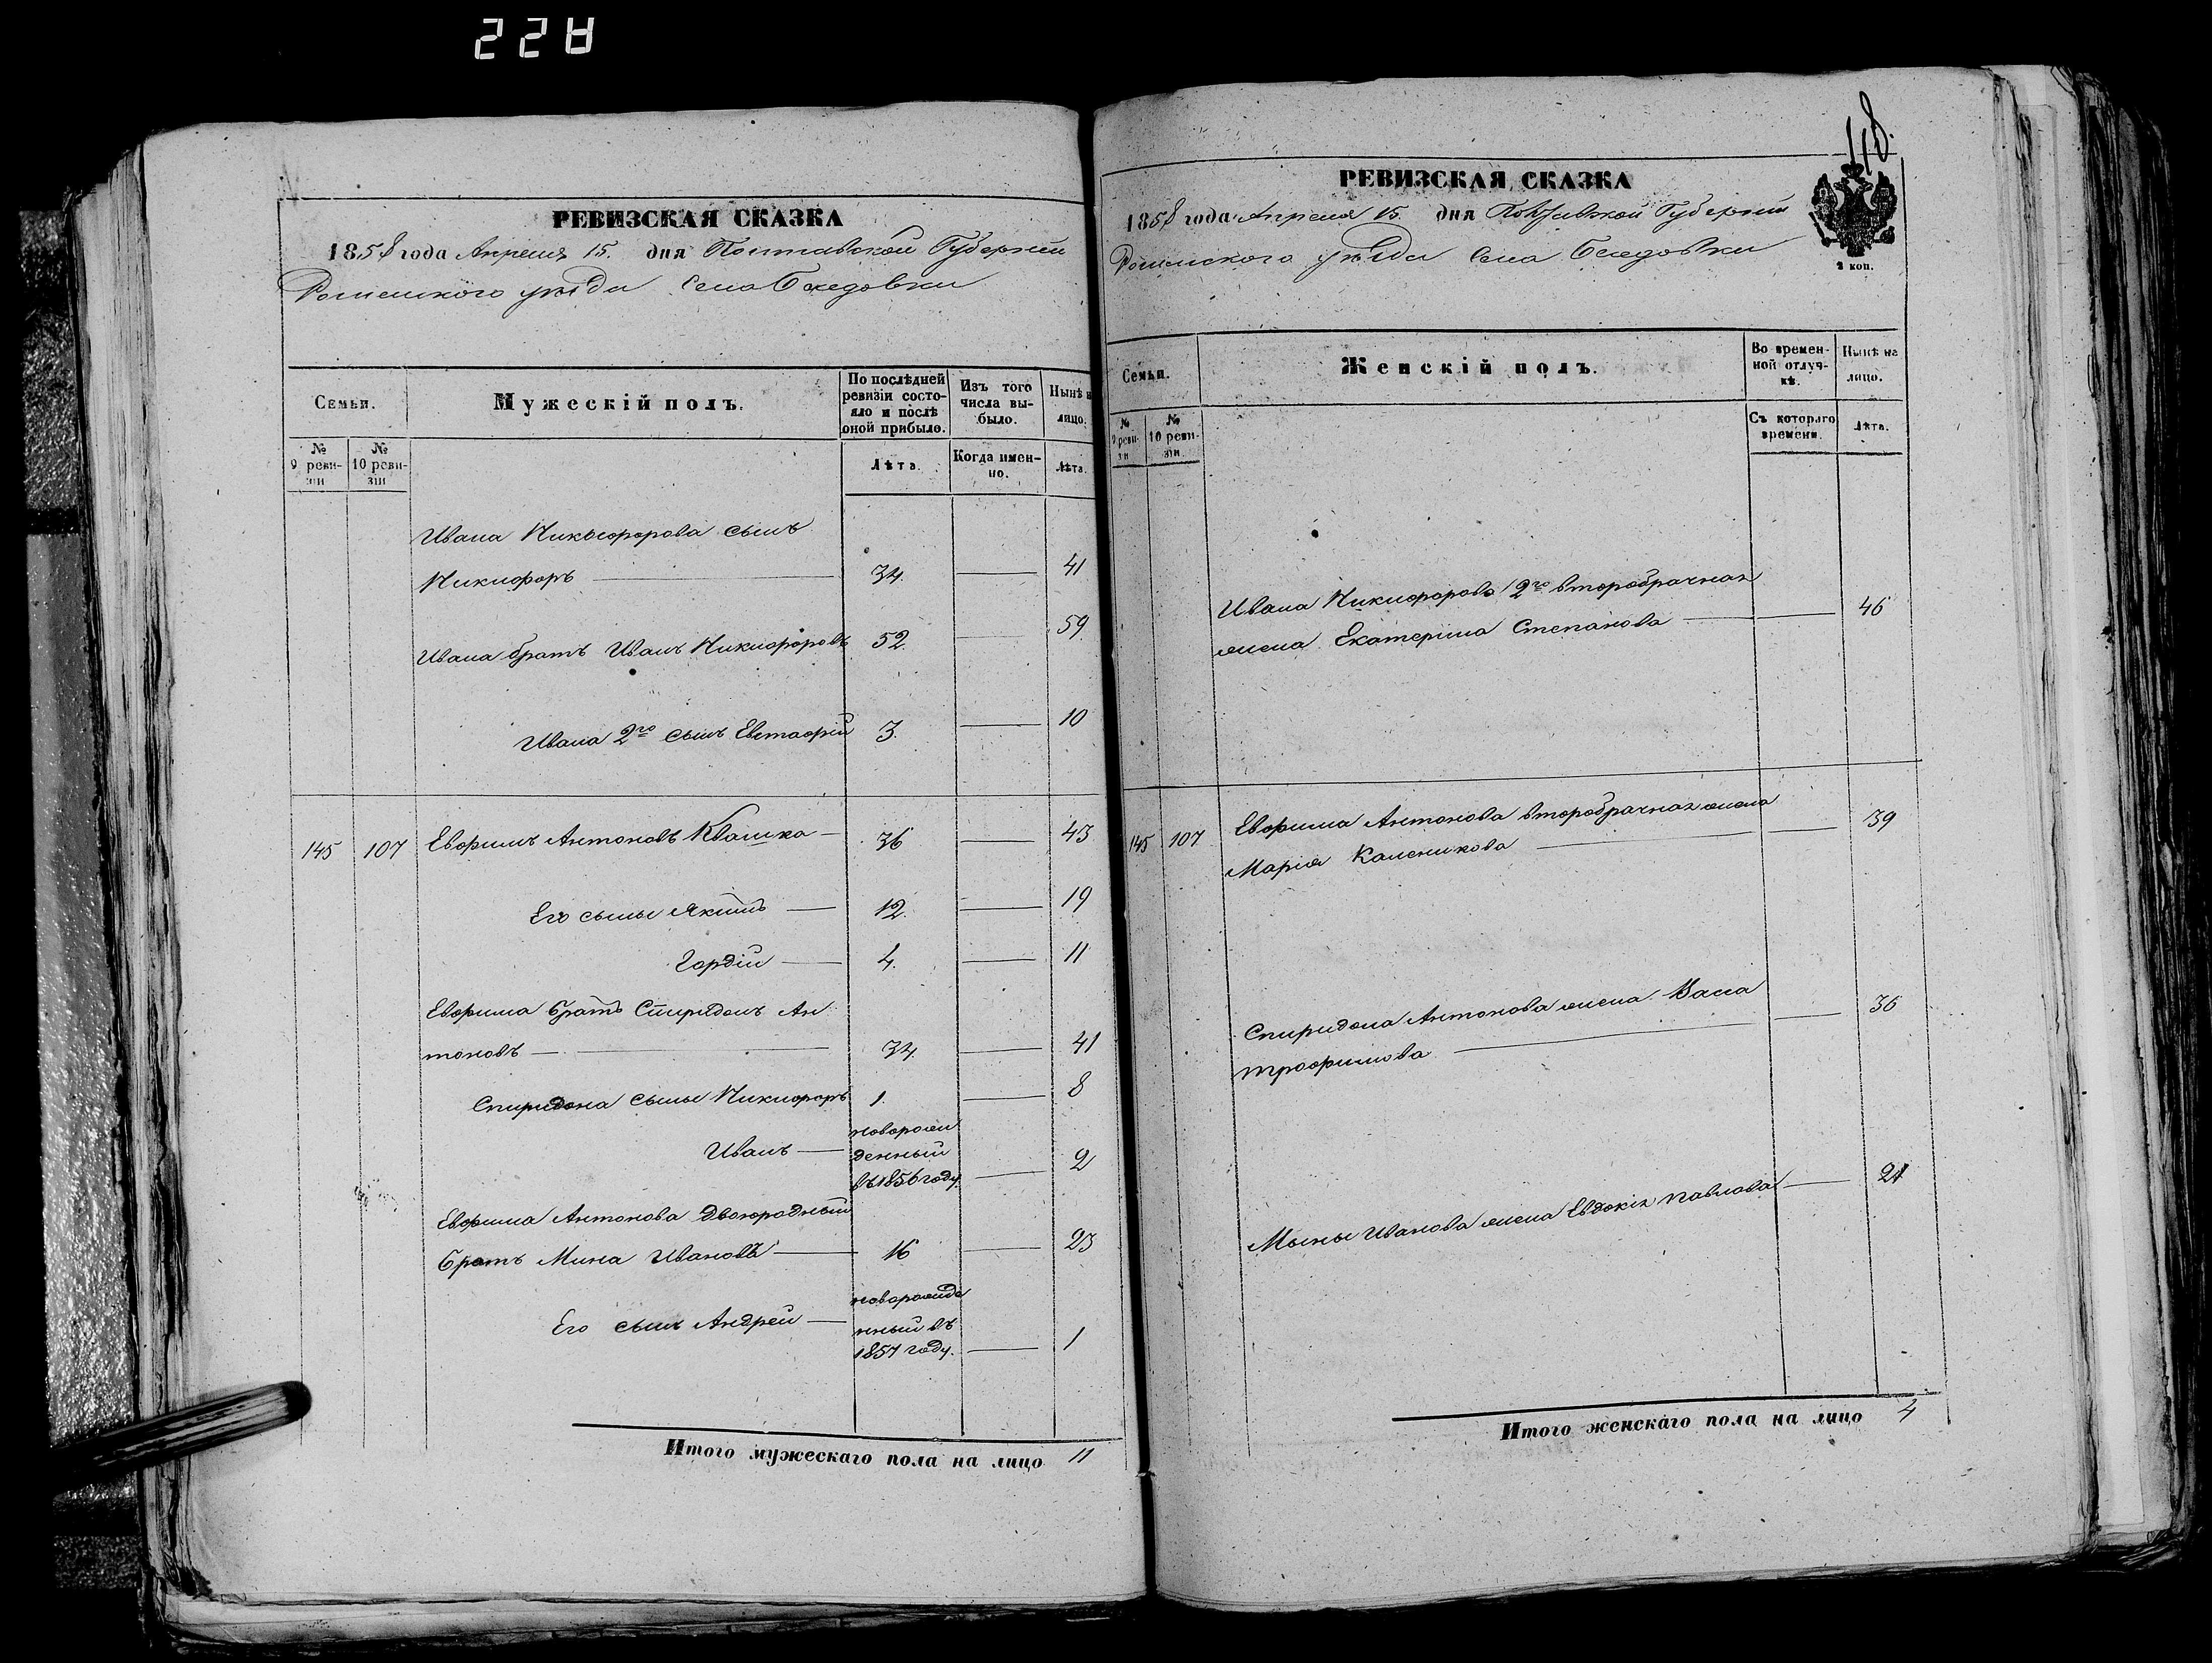 228
РЕВИЗСКАЯ СКАЗКА
1858 года Апреля 15. дня Полтавской Губернии
Роменского уѣзда Села Беседовки
Семьи.
Мужескій полъ.
По послѣдней ревизіи состояло и послѣ оной прибыло.
Изъ того числа выбыло.
Нынѣ на лицо.
№ 9 ревизіи
№ 10 ревизіи
Лѣта.
Когда именно.
Лѣта.
Ивана Никифорова сынъ
Никифоръ 34. 41
Ивана братъ Иванъ Никифоровъ 52. 59.
Ивана 2го сынъ Евстафій 3. 10
145 107 Ефимъ Антоновъ Квашка 36 43
Его сыны Якимъ 12. 19
Гордій 4. 11
Ефима братъ Спиридонъ Ан
тоновъ 34. 41
Спиридона сыны Никифоръ 1. 8
Иванъ новорож
денный
въ 1856 году. 2
Ефима Антонова двоюродный
братъ Мина Ивановъ 16 23
Его сынъ Андрей новорожде
нный въ
1857 году. 1
Итого мужескаго пола на лицо 11
118.
РЕВИЗСКАЯ СКАЗКА
1858 года Апреля 15. дня Полтавской Губернии
Роменского уѣзда Села Беседовки
2 коп.
Семьи.
Женскій полъ.
Во временной отлучкѣ.
Нынѣ на лицо.
№ 9 ревизіи
№ 10 ревизіи
Съ котораго времени.
Лѣта.
Ивана Никифорова 2го второбрачная
жена Екатерина Степанова 46
145 107 Ефима Антонова второбрачная жена
Марія Каленикова 39
Спиридона Антонова жена Васса
Трофимова 36
Мины Иванова жена Евдокія Павлова 21
Итого женскаго пола на лицо 4